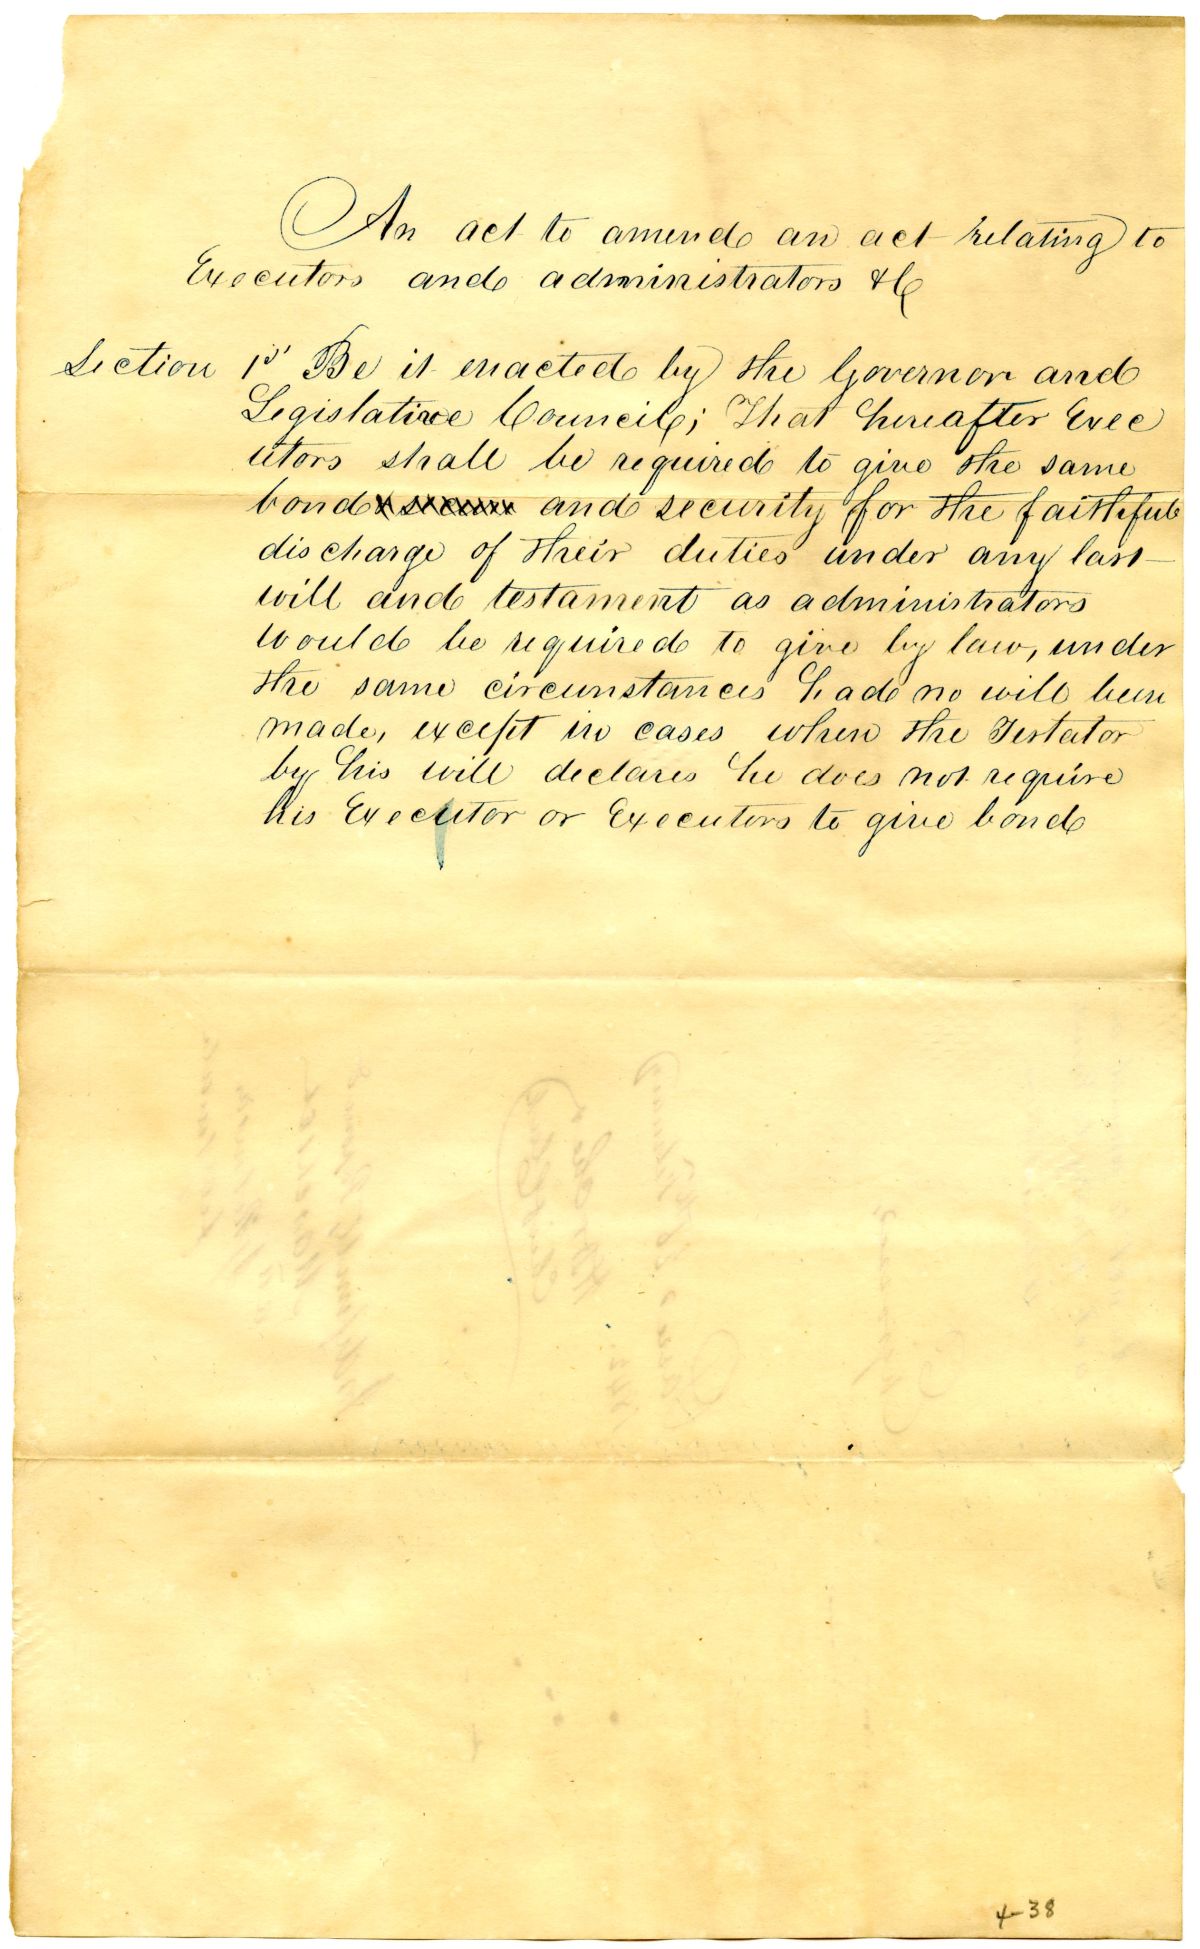 An act to amend an act relating to
Executors and administrators &c
Section 1st Be it enacted by the Governor and
Legislative Council; That hereafter Exec
utors shall be required to give the same
bond and security for the faithful
discharge of their duties under any last
will and testament as administrators
would be required to give by law, under
the same circumstances had no will been
made, except in cases when the Testator
by his will declares he does not require
his Executor or Executors to give bond
4-38